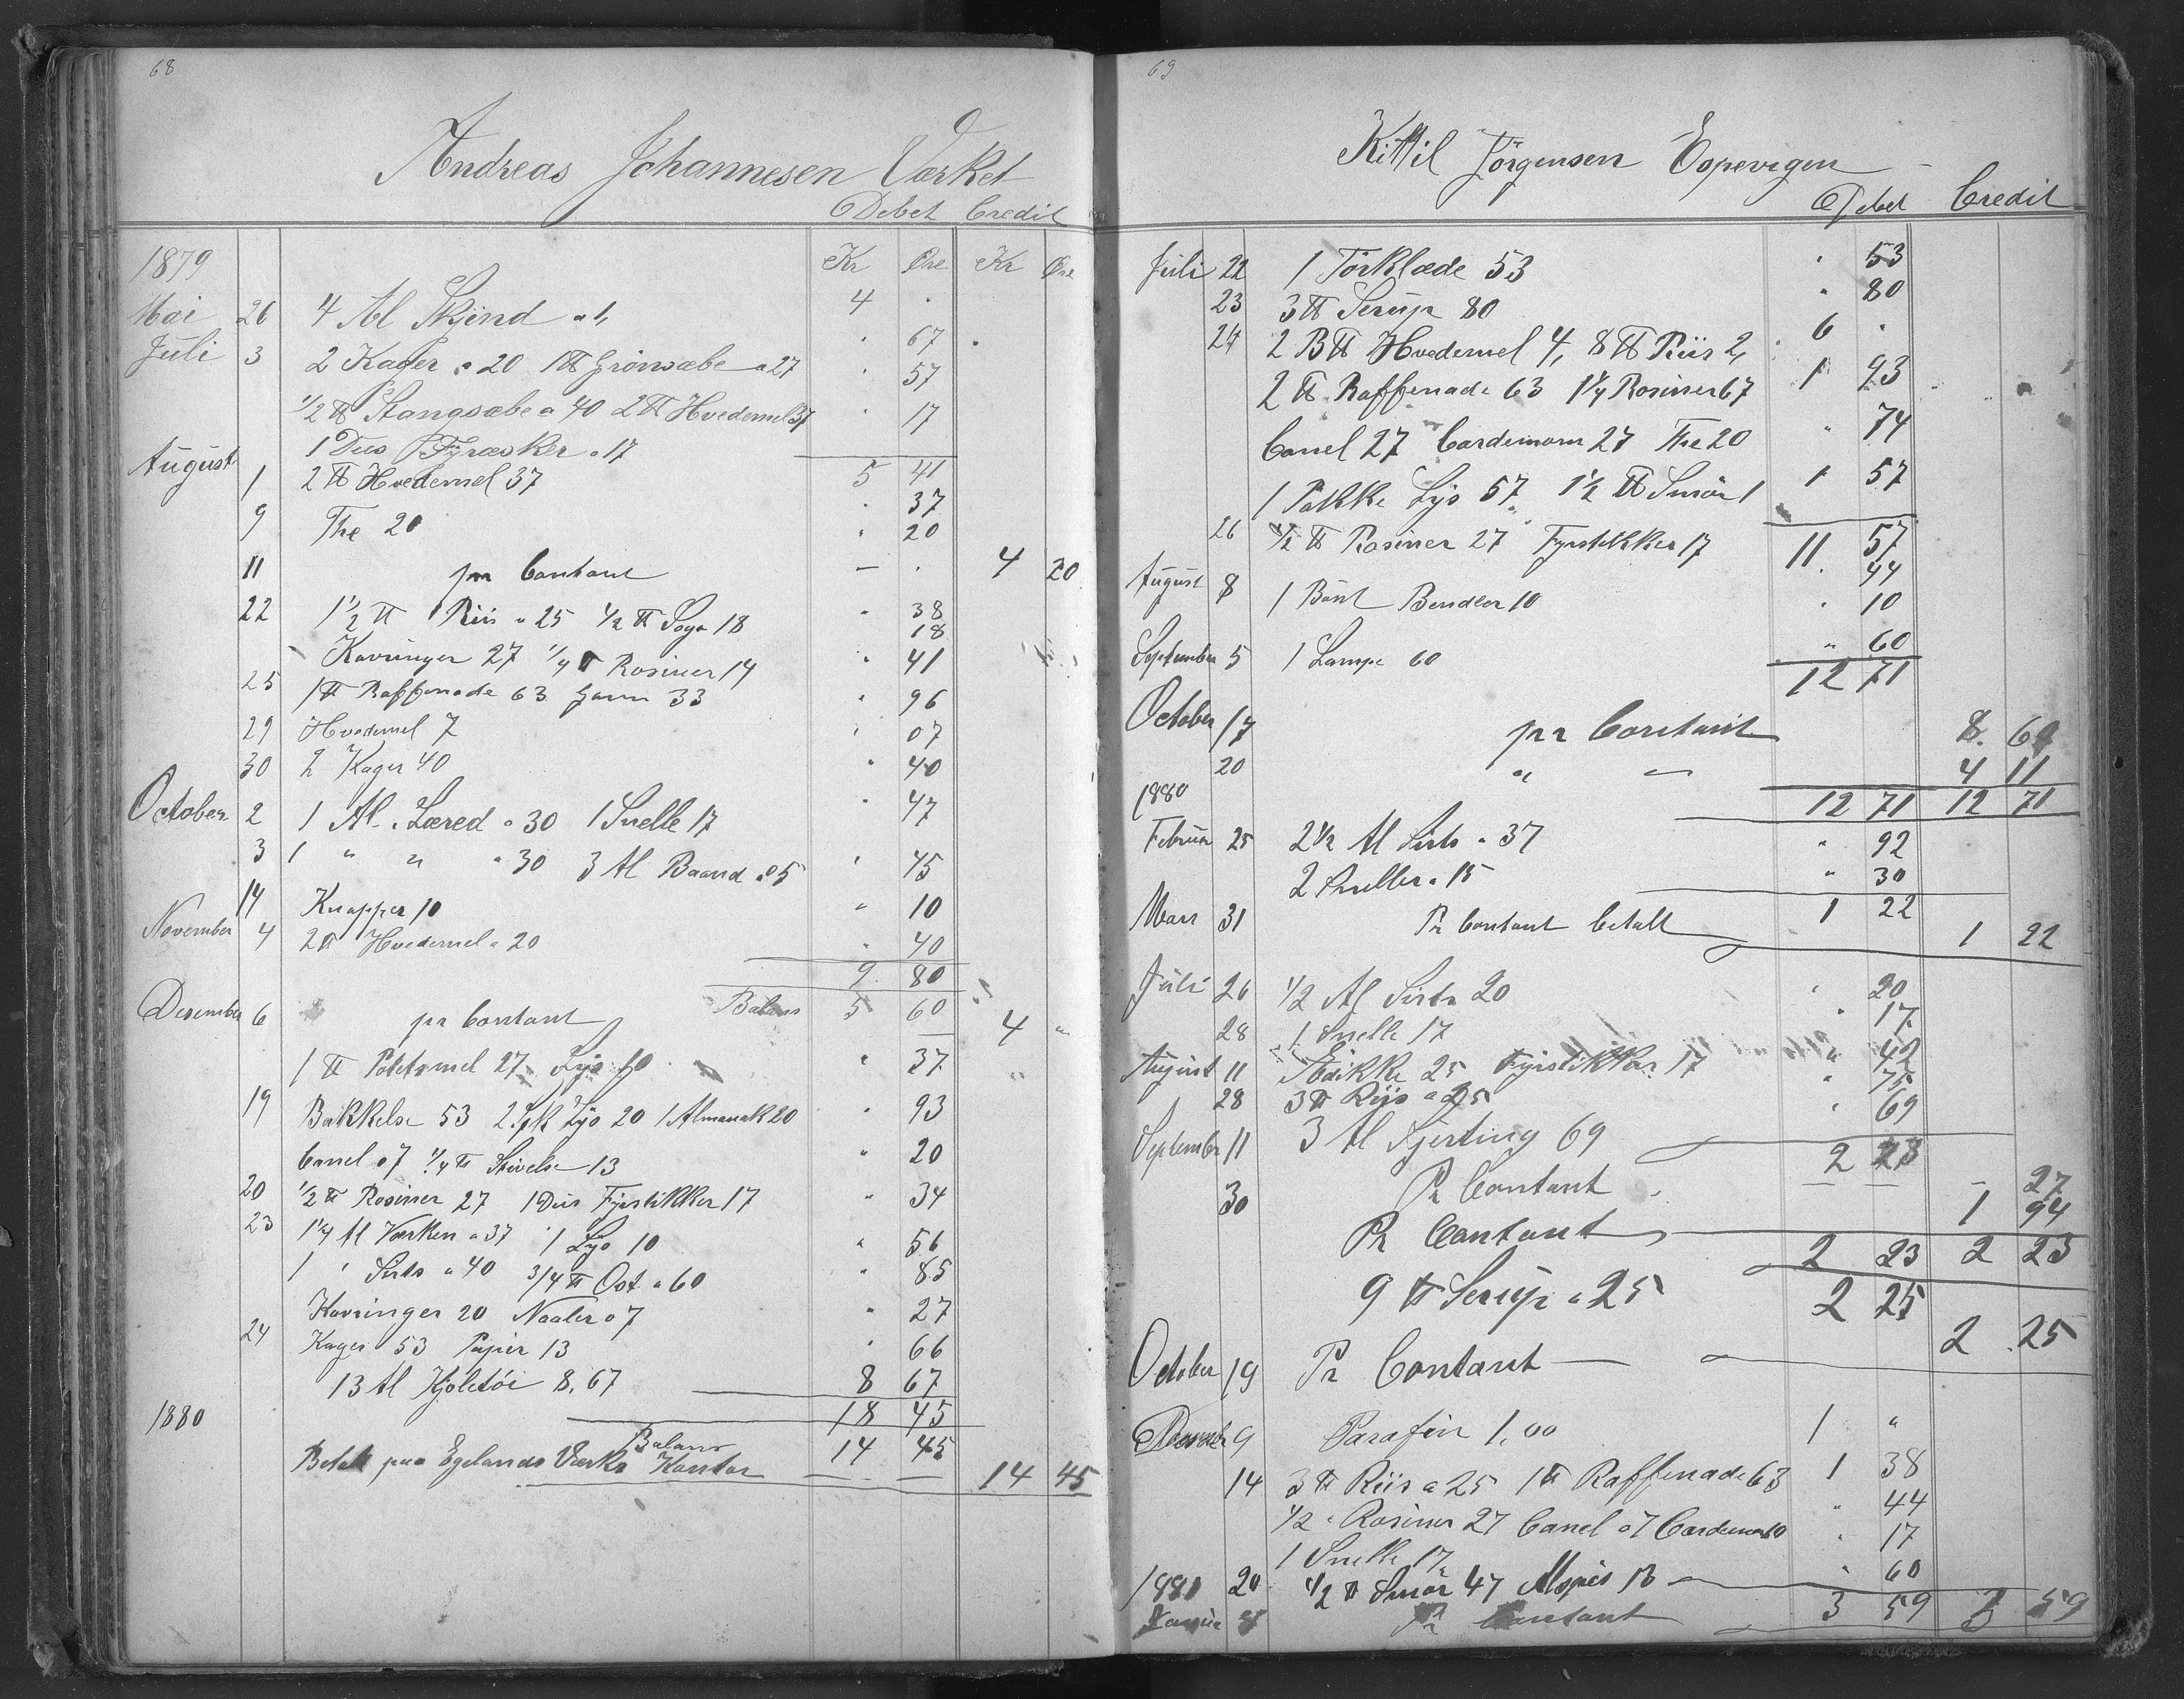 68
Andreas Johannesen Værket
Debet Credit
1879 Kr Øre Kr Øre
Mai 26 4 Al Skjind a 1, 4 "
Juli 3 2 Kager a 20 1 ℔ Grönsæbe a 27 " 67
1/2 ℔ Stangsæbe a 40 2 ℔ Hvedemel 37 " 57
1 Dus Fyræsker a 17 " 17
5 41
August 1 2 ℔ Hvedemel 37 " 37
9 The 20 " 20
11 pr Contant — . 4 20
22 1 1/2 ℔ Riis a 25 1/2 ℔ Sago 18 " 38
18
Kavringer 27 1/4 ℔ Rosiner 14 " 41
25 1 ℔ Raffenade 63 Garn 33 " 96
29 Hvedemel 7 " 07
30 2 Kager 40 " 40
October 2 1 Al Læred a 30 1 Snelle 17 " 47
3 1 " " a 30 3 Al Baand a 05 " 45
14 Knapper 10 " 10
November 4 2 ℔ Hvedemel a 20 " 40
9 80
Balans 5 60
Desember 6 pr Contant — 4 "
1 ℔ Potetsmel 27 Lys 10 " 37
19 Bakkelse 53 2 Spk Lys 20 1 Almanak 20 " 93
Canel 07 1/4 ℔ Stivelse 13 " 20
20 1/2 ℔ Rosiner 27 1 Dus Fyrstikker 17 " 34
23 1 1/4 Al Værken a 37 1 Lys 10 " 56
1 " Sirts a 40 3/4 ℔ Ost a 60 " 85
Kavringer 20 Naaler 07 " 27
24 Kager 53 Papir 13 " 66
13 Al Kjoletöi 8,67 8 67
18 45
1880 Balans 14 45
Betalt paa Egelands Værks Kontor — — 14 45
69
Kittil Jörgensen Espevigen
Debet Credit
Juli 22 1 Törklæde 53 " 53
23 3 ℔ Serup 80 " 80
24 2 B℔ Hvedemel 4, 8 ℔ Riis 2, 6 "
2 ℔ Raffenade 63 1 1/4 Rosiner 67 1 93
Canel 27 Cardemom 27 The 20 " 74
1 Pakke Lys 57 1 1/2 ℔ Smör 1 1 57
11 57
26 1/2 ℔ Rosiner 27 Fyrstikker 17 " 44
August 8 1 Bunt Bendler 10 " 10
September 5 1 Lampe 60 " 60
12 71
October 17 pr Contant 8. 60
20 " " 4 11
12 71 12 71
1880
Februar 25 2 1/2 Al Sirts a 37 " 92
2 Sneller a 15 " 30
1 22
Mars 31 Pr Contant betalt 1 22
Juli 26 1/2 Al Sirts 20 " 20
28 1 Snelle 17 " 17
August 11 Eddikke 25 Fyrstikker 17 " 42
28 3 ℔ Riis a 25 " 75
September 11 3 Al Sjerting 69 " 69
2 23
Pr Contant — — — 27
30 Pr Contant 1 94
2 23 2 23
9 ℔ Serup a 25 2 25
October 19 Pr Contant 2 25
Desember 9 Parafin 1,00 1 "
14 3 ℔ Riis a 25 1 ℔ Raffenade 63 1 38
1/2 " Rosiner 27 Canel 07 Cardemom 10 " 44
1 Snelle 17 " 17
20 1/2 ℔ Smör 47 Alspis 13 " 60
1881
Januar Pr Contant 3 59 3 59